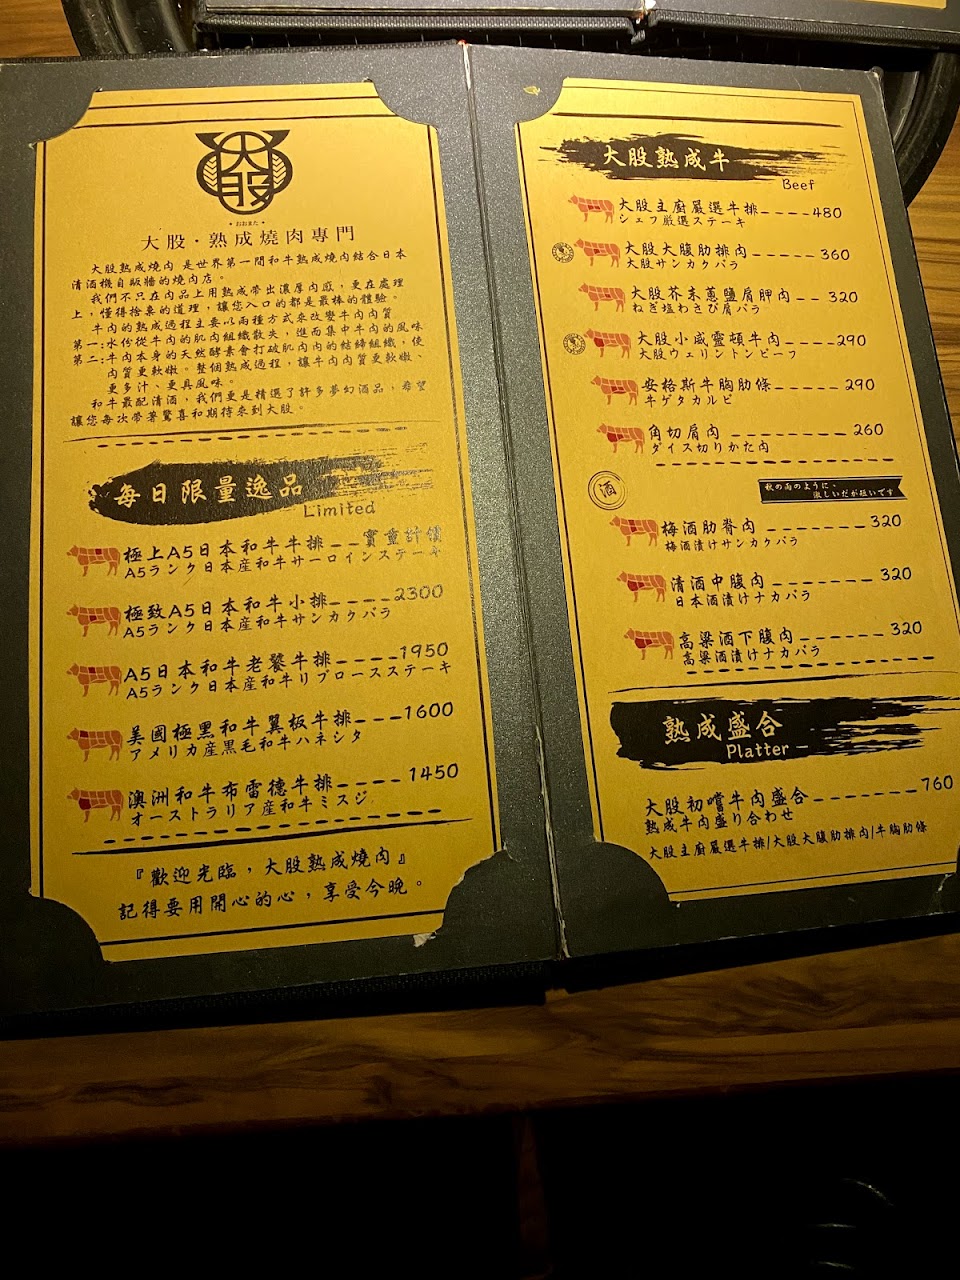 大股
おおまた
大股·熟成燒肉專門
大股熟成燒肉 是世界第一間和牛熟成燒肉結合日本
清酒機自販牆的燒肉店。
我們不只在肉品上用熟成帶出濃厚肉感,更在處理
上,懂得捨棄的道理,讓您入口的都是最棒的體驗。
牛肉的熟成過程主要以兩種方式來改變牛肉肉質
第一:水份從牛肉的肌肉組織散失,進而集中牛肉的風味
第二:牛肉本身的天然酵素會打破肌肉內的結締組織,使
肉質更軟嫩。整個熟成過程,讓牛肉肉質更軟嫩、
更多汁、更具風味。
和牛最配清酒,我們更是精選了許多夢幻酒品,希望
讓您每次帶著驚喜和期待來到大股。
每日限量逸品
Limited
極上A5日本和牛牛排__實重計價
A5ランク日本産和牛サーロインステーキ
極致A5日本和牛小排____2300
A5ランク日本産和牛サンカクバラ
A5日本和牛老饕牛排____1950
A5ランク日本産和牛リブロースステーキ
美國極黑和牛翼板牛排___1600
アメリカ産黒毛和牛ハネシタ
澳洲和牛布雷德牛排____1450
オーストラリア産和牛ミスジ
『歡迎光臨,大股熟成燒肉』
記得要用開心的心,享受今晚。
大股熟成牛
Beef
大股主廚嚴選牛排____480
シェフ厳選ステーキ
大股大腹肋排肉_____360
大股サンカクバラ
大股芥末蔥鹽肩胛肉__320
ねぎ塩わさび肩バラ
大股小威靈頓牛肉_____290
大股ウェリントンビーフ
安格斯牛胸肋條_____290
牛ゲタカルビ
角切肩肉________260
ダイス切りかた肉
酒
秋の雨のように、
激しいだが短いです
梅酒肋脊肉_______320
梅酒漬けサンカクバラ
清酒中腹肉_______320
日本酒漬けナカバラ
高粱酒下腹肉______320
高粱酒漬けナカバラ
熟成盛合
Platter
大股初嚐牛肉盛合_______760
熟成牛肉盛り合わせ
大股主廚嚴選牛排/大股大腹肋排肉/牛胸肋條